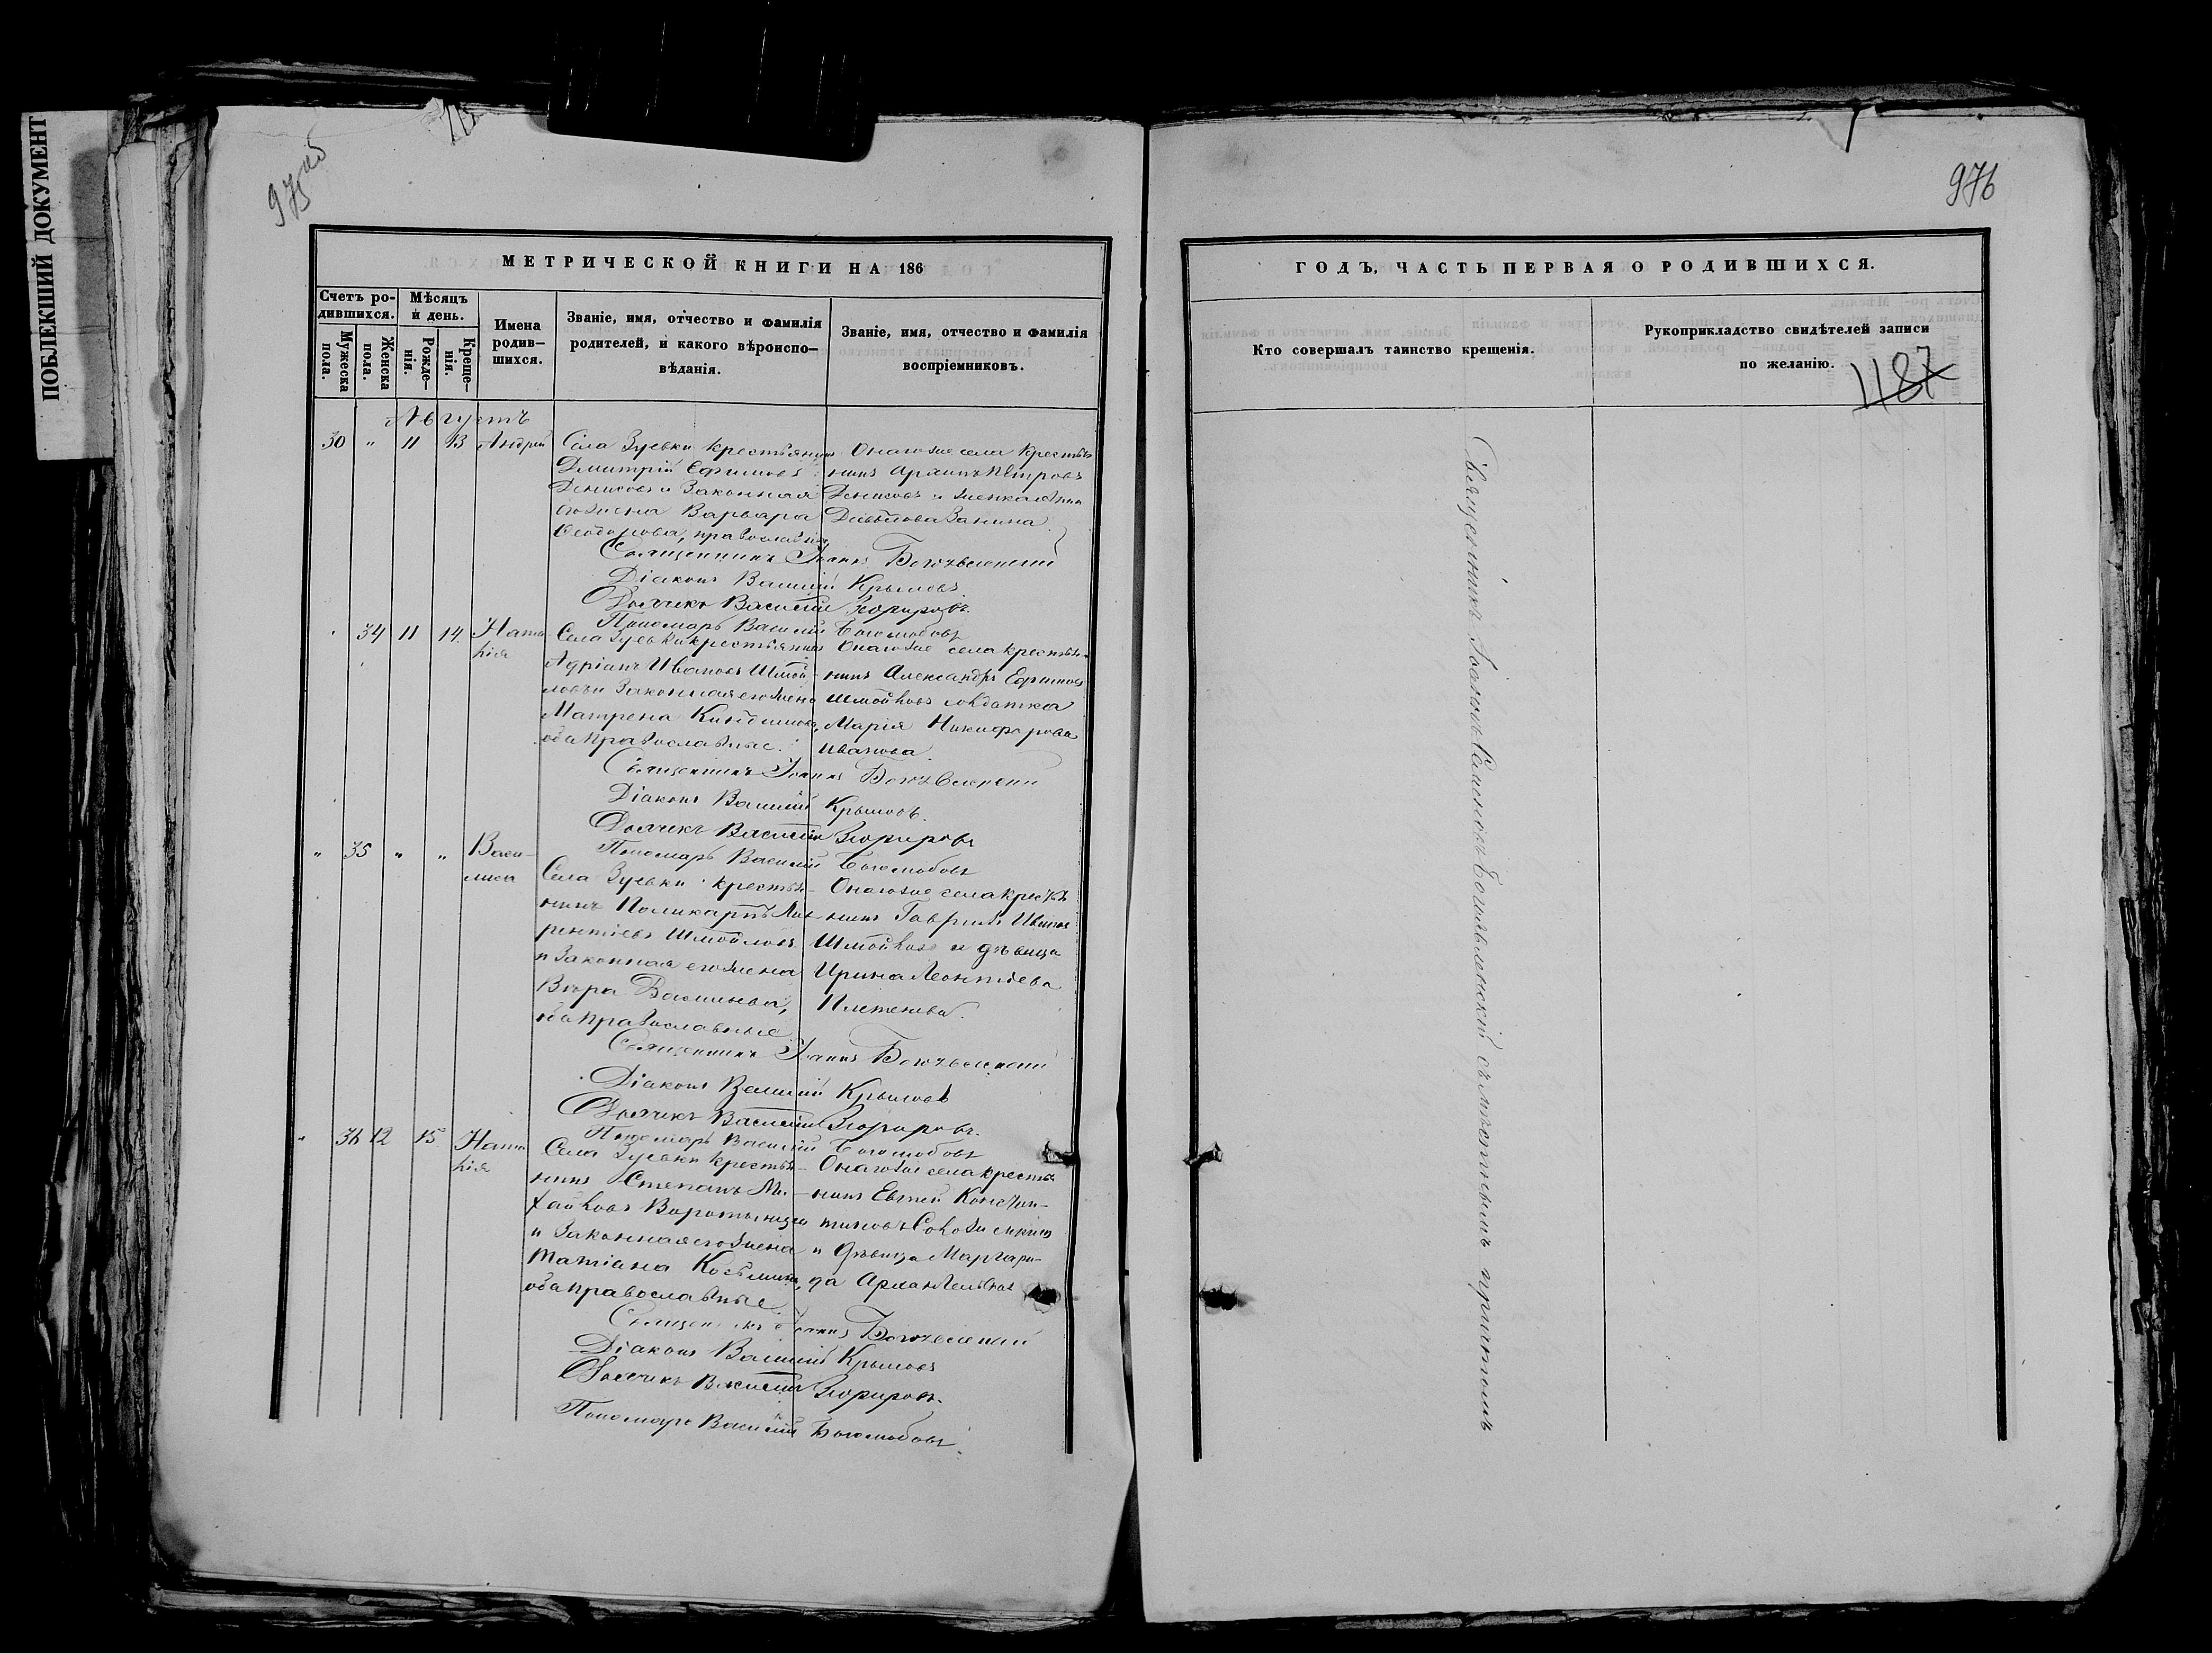 ПОБЛЕКШИЙ ДОКУМЕНТ
975 об
976
МЕТРИЧЕСКОЙ КНИГИ НА 186
Счетъ ро-
дившихся.
Мужеска
пола.
Женска
пола.
Мѣсяцъ
и день.
Рожде-
нія.
Креще-
нія.
Имена
родив-
шихся.
Званіе, имя, отчество и фамилія
родителей, и какого вѣроиспо-
вѣданія.
Званіе, имя, отчество и фамилія
воспріемниковъ.
Августъ
30 " 11 13 Андрей
Села Зуевки крестьянинъ
Дмитрій Ефимовъ
Денисовъ и Законная
его жена Варвара
Ѳеодорова, православные
Онаго же села крестья
нинъ Архипъ Петровъ
Денисовъ и
Занина
Священникъ Іоаннъ Богоявленскій
Діаконъ Василій Крыловъ
Дьячекъ Василій
Пономарь Василій Боголюбовъ
34 11 14 Ната
лія
Села Зуевки крестьянинъ
Адріанъ Ивановъ Шмой-
ловъ и Законная его жена
Матрена
оба православные.
Онаго же села крестья-
нинъ Александръ Ефимовъ
Шмойловъ солдатка
Марія Никифорова
Иванова
Священникъ Іоаннъ Богоявленскій
Діаконъ Василій Крыловъ.
Дьячекъ Василій
Пономарь Василій Боголюбовъ
" 35 " " Васи-
лиса
Села Зуевки крестья-
нинъ Поликарпъ Лав
рентіевъ Шмойловъ
и Законная его жена
Вѣра Васильева,
оба православные
Онаго же села крестья
нинъ Гавріилъ Ивановъ
Шмойловъ и дѣвица
Ирина Леонтіева
Плетенева.
Священникъ Іоаннъ Богоявленскій
Діаконъ Василій Крыловъ
Дьячекъ Василій
Пономарь Василій Боголюбовъ
" 36 12 15 Ната
лія
Села Зуевки крестья-
нинъ Степанъ Ми-
хайловъ
и Законная его жена
Татіана Косьмина,
оба православные
Онаго же села крестья
нинъ Евгеній Констан-
тиновъ
и дѣвица Маргари-
да Архангельская
Священникъ Іоаннъ Богоявленскій
Діаконъ Василій Крыловъ
Дьячекъ Василій
Пономарь Василій Боголюбовъ
ГОДЪ, ЧАСТЬ ПЕРВАЯ О РОДИВШИХСЯ.
Кто совершалъ таинство крещенія.
Рукоприкладство свидѣтелей записи
по желанію.
1187
Священникъ Іоаннъ Богоявленскій съ причтомъ